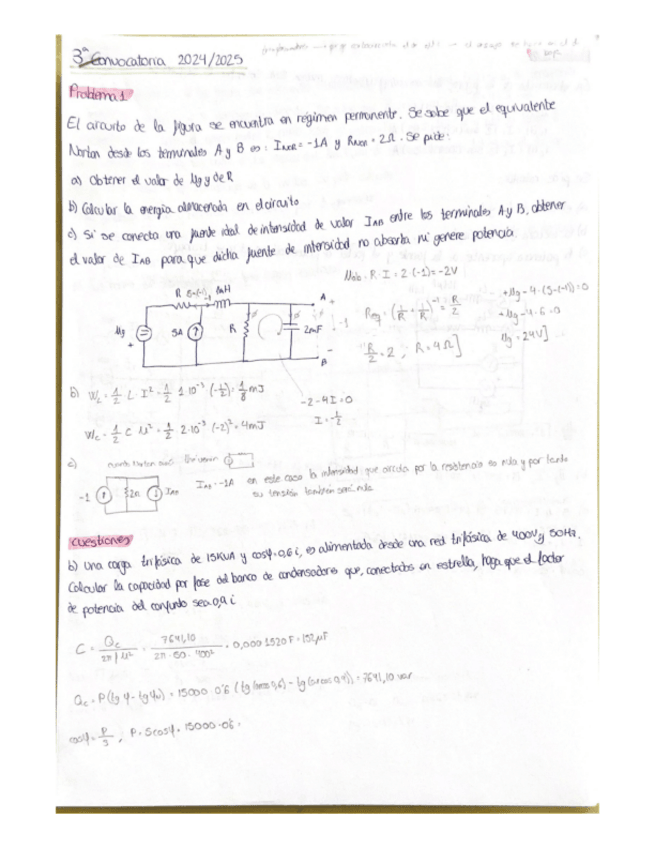 3ª Convocatoria 2024/2025
Problema 1
El circuito de la figura se encuentra en régimen permanente. Se sabe que el equivalente
Norton desde los terminales A y B es: I_NOR = -1A y R_NOR = 2Ω. Se pide:
a) Obtener el valor de Ug y de R
b) Calcular la energía almacenada en el circuito
c) Si se conecta una fuente ideal de intensidad de valor I_AB entre los terminales A y B, obtener
el valor de I_AB para que dicha fuente de intensidad no absorba ni genere potencia.
Uab = R·I = 2·(-1) = -2V
R
1mH
A
+
Ug
+
5A
R
2mF
-1
-
B
Req = (1/R + 1/R)^-1 = R/2
R/2 = 2 ; R = 4Ω]
+Ug - 4·(5-(-1)) = 0
+Ug - 4·6 = 0
Ug = 24V]
-2 - 4I = 0
I = -1/2
b) W_L = 1/2 L·I² = 1/2 1·10^-3 · (-1/2)² = 1/8 mJ
W_C = 1/2 C U² = 1/2 2·10^-3 (-2)² = 4mJ
c)
-1
2Ω
I_AB
I_AB = -1A en este caso la intensidad que circula por la resistencia es nula y por tanto
su tensión también será nula
Cuestiones
b) Una carga trifásica de 15KVA y cosφ=0,6 i, es alimentada desde una red trifásica de 400V y 50Hz.
Calcular la capacidad por fase del banco de condensadores que, conectados en estrella, haga que el factor
de potencia del conjunto sea 0,9 i
C = Qc / 2πfU² = 7641,10 / 2π·50·400² = 0,0001520 F = 152μF
Qc = P(tgφ - tgφ) = 15000·0'6 (tg(arcos 0,6) - tg(arcos 0,9)) = 7641,10 var
cosφ = P/S ; P = S cosφ = 15000·0'6 =